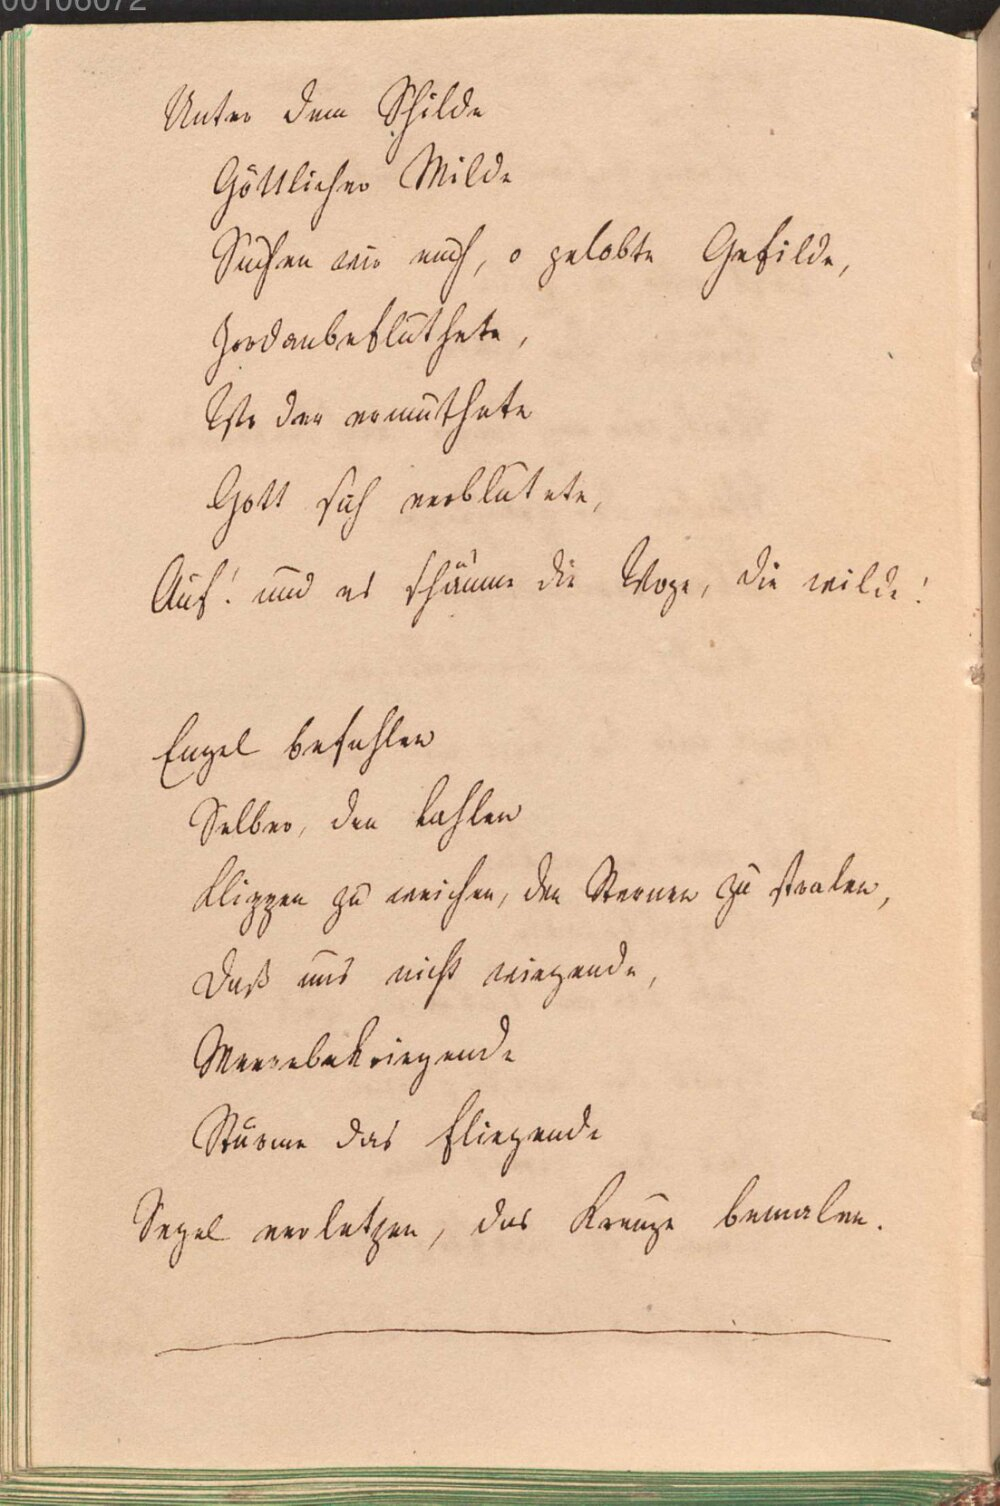 00106072
Unter dem Schilde
Göttlicher Milde
Suchen wir euch, o gelobte Gefilde,
Jordanbefluthete,
Wo der ermuthete
Gott sich verblutete,
Auf! und es schäume die Woge, die wilde!
Engel befehlen
Selber, den kahlen
Klippen zu weichen, den Sternen zu stralen,
Daß uns nicht wiegende,
Meerebekriegende
Stürme das fliegende
Segel verletzen, das Kreuze bemalen.